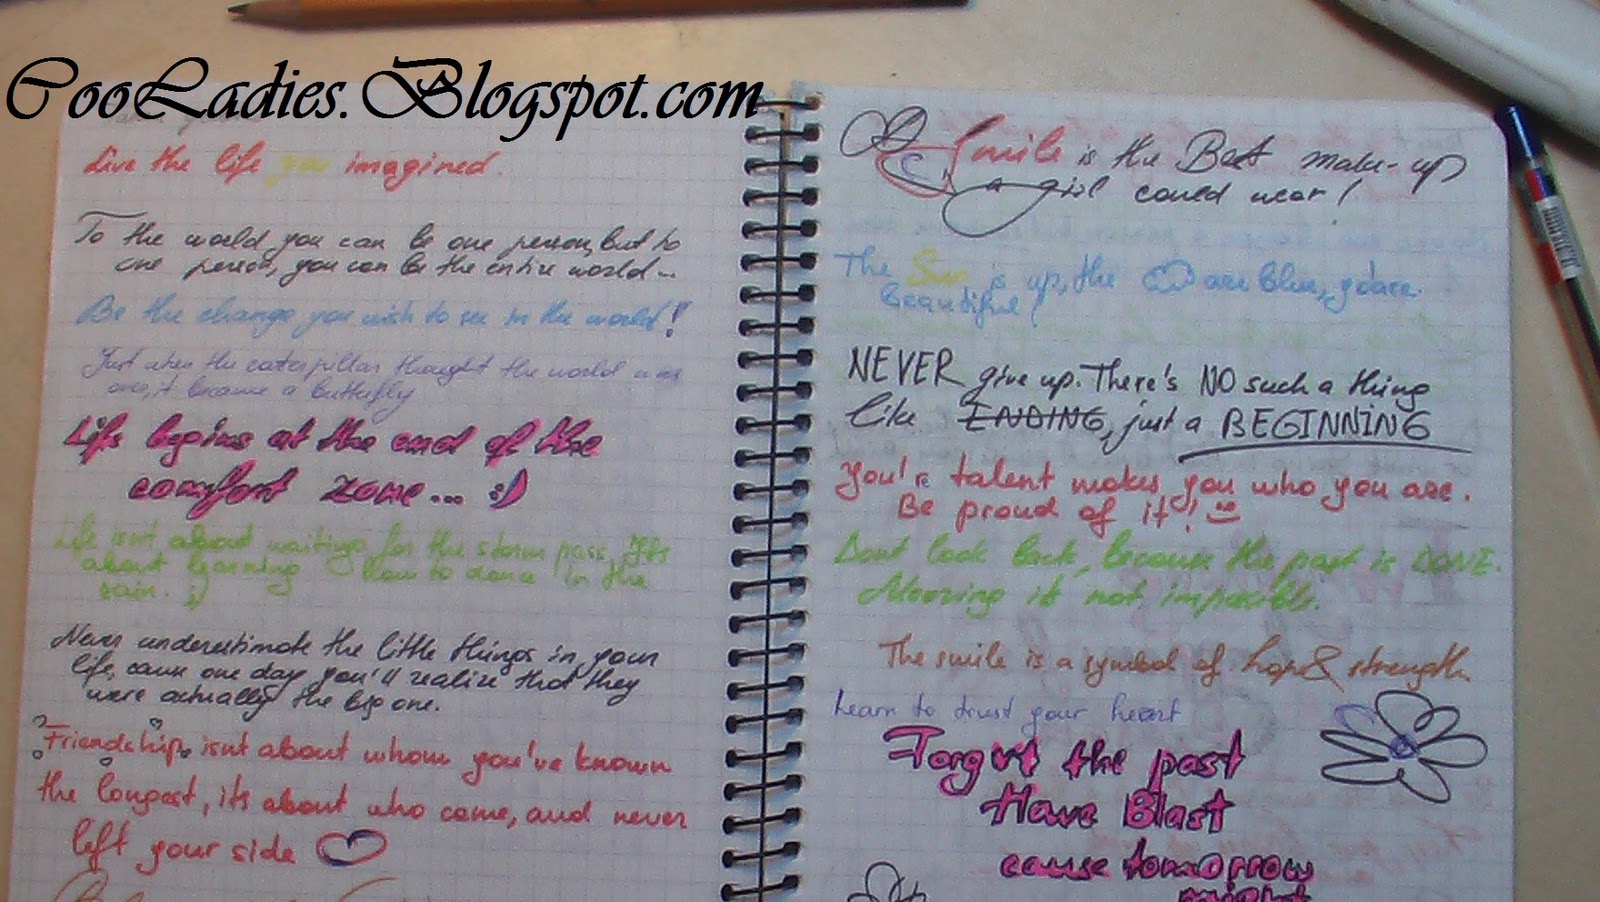 CooLadies.Blogspot.com
Live the life you imagined.
To the world you can be one person, but to
one person, you can be the entire world...
Be the change you wish to see in the world!
Just when the caterpillar thought the world was
over, it became a butterfly
Life begins at the end of the
comfort zone... :)
Life isn't about waiting for the storm pass, It's
about learning how to dance in the
rain. :)
Never underestimate the little things in your
life, cause one day you'll realize that they
were actually the big one.
Friendship isnt about whom you've known
the longest, its about who came, and never
left your side
Smile is the Best make-up
a girl could wear!
The Sun is up, the are blue, you're
beautiful!
NEVER give up. There's NO such a thing
like ENDING, just a BEGINNING
You're talent makes you who you are.
Be proud of it!
Dont look back, because the past is DONE.
Moozing it not impossible.
The smile is a symbol of hope & strength.
Learn to trust your heart
Forget the past
Have Blast
cause tomorrow
might